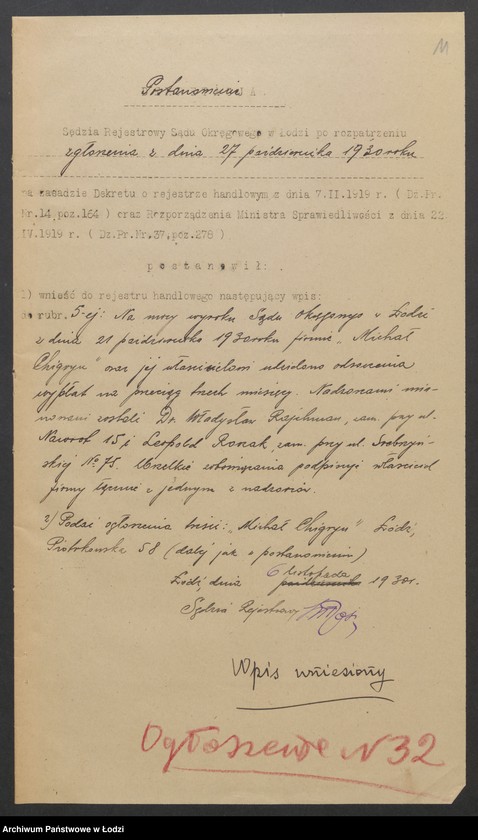 11
Postanowienie
Sędzia Rejestrowy Sądu Okręgowego w Łodzi po rozpatrzeniu
zgłoszenia z dnia 27 października 1930 roku
na zasadzie Dekretu o rejestrze handlowym z dnia 7.II.1919 r. ( Dz.Pr.
Nr.14 poz.164 ) oraz Rozporządzenia Ministra Sprawiedliwości z dnia 22
IV.1919 r. ( Dz.Pr.Nr.37, poz.278 )
postanowił:
1) wnieść do rejestru handlowego następujący wpis:
do rubr. 5-ej: Na mocy wyroku Sądu Okręgowego w Łodzi
z dnia 21 października 1930 roku firmie „Michał
Chigryn" oraz jej właścicielom udzielono odroczenia
wypłat na przeciąg trzech miesięcy. Nadzorcami mia-
nowani zostali Dr. Władysław Rajchman, zam. przy ul.
Nawrot 15 i Leopold Ronak, zam. przy ul. Srebrzyń-
skiej № 75. Wszelkie zobowiązania podpisuje właściciel
firmy łącznie z jednym z nadzorców.
2) Podać ogłoszenia treści: „Michał Chigryn" Łódź,
Piotrkowska 58 (dalej jak w postanowieniu)
Łódź, dnia 6 listopada października 1930 r.
Sędzia Rejestrowy
Wpis wniesiony
Ogłoszenie N 32
Archiwum Państwowe w Łodzi